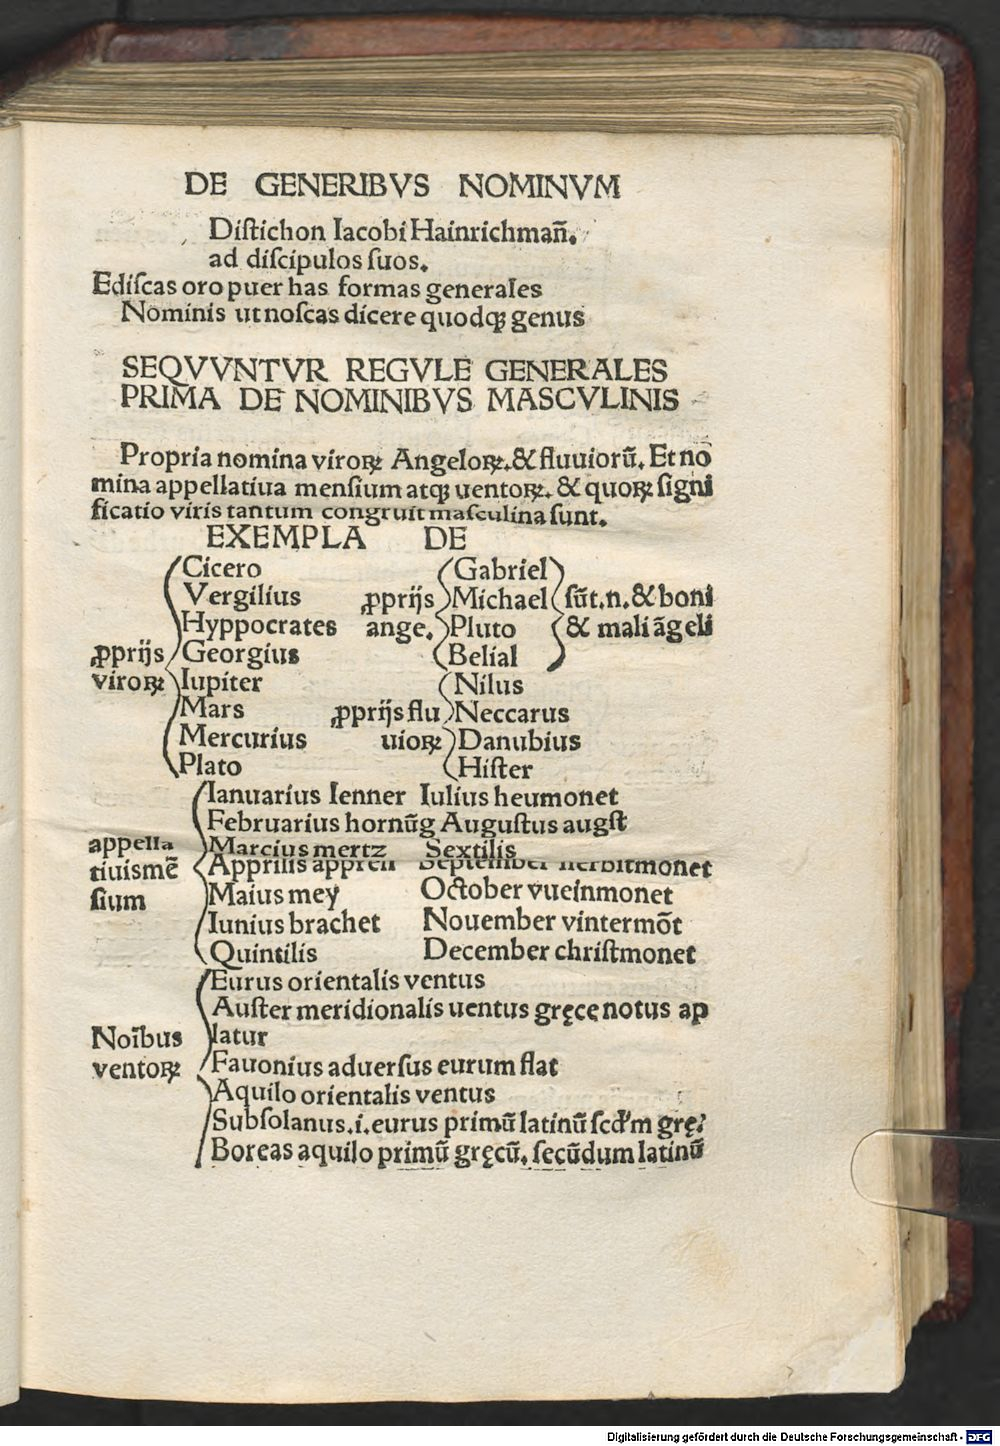 DE GENERIBVS NOMINVM
Diſtichon Iacobi Hainrichman̄.
ad diſcipulos ſuos.
Ediſcas oro puer has formas generales
Nominis ut noſcas dicere quodꝙ genus
SEQVVNTVR REGVLE GENERALES
PRIMA DE NOMINIBVS MASCVLINIS
Propria nomina viroꝝ Angeloꝝ.&fluuiorū. Et no
mina appellatiua menſium atqꝫ uentoꝝ. & quoꝝ ſigni
ficatio viris tantum congruit maſculina ſunt.
EXEMPLA DE
Cicero
Vergilius
Hyppocrates
ꝓprijs Georgius
viroꝝ Iupiter
Mars
Mercurius
Plato
Gabriel
ꝓprijs Michael ſūt.n.& boni
ange. Pluto & mali āgeli
Belial
Nilus
ꝓprijs flu Neccarus
uioꝝ Danubius
Hiſter
Ianuarius Ienner Iulius heumonet
Februarius hornūg Auguſtus augſt
appella Marcius mertz Sextilis
tiuis mē Apprilis apprell September herbitmonet
ſium Maius mey October vueinmonet
Iunius brachet Nouember vintermōt
Quintilis December chriſtmonet
Eurus orientalis ventus
Auſter meridionalis uentus gręcę notus ap
Noībus latur
ventoꝝ Fauonius aduerſus eurum flat
Aquilo orientalis ventus
Subſolanus.i.eurus primū latinū ſcd'm grę
Boreas aquilo primū gręcū. ſecūdum latinū
Digitalisierung gefördert durch die Deutsche Forschungsgemeinschaft - DFG